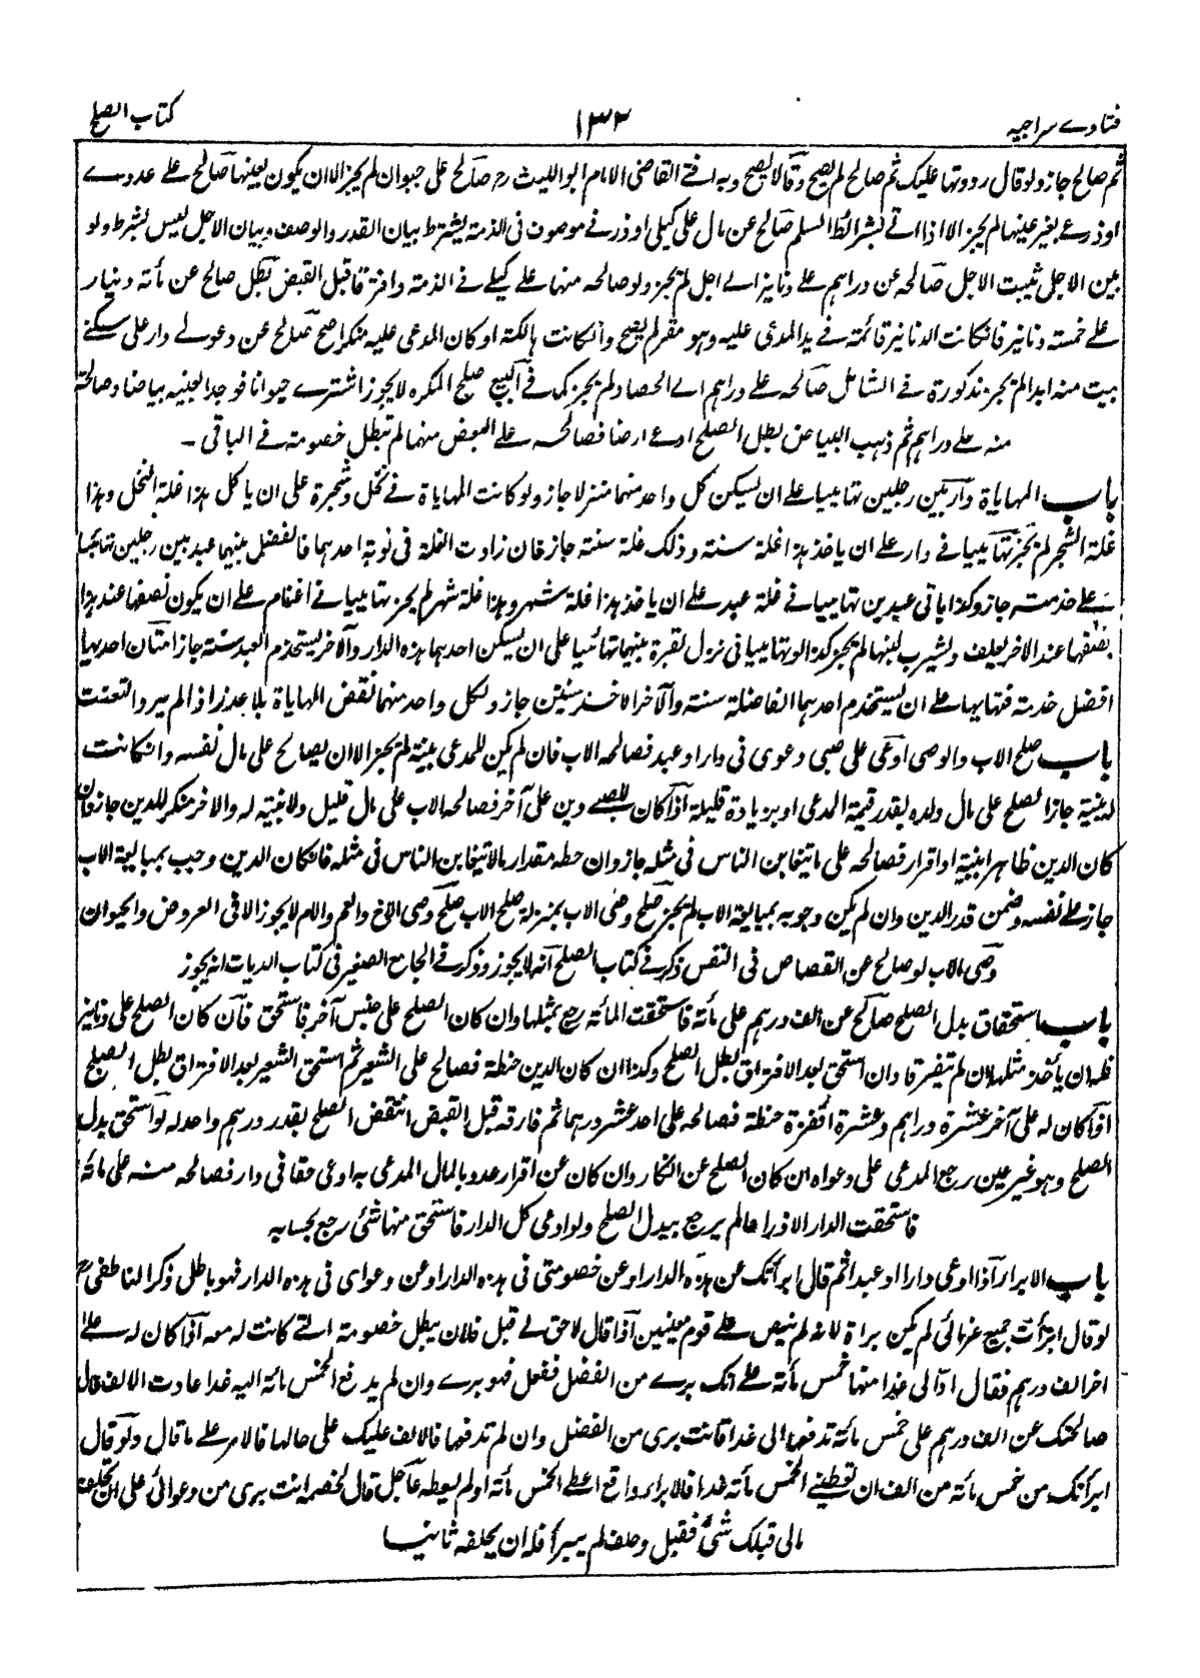 فتاوے سراجیہ ۱۳۲ کتاب الصلح
ثم صالح جاز ولو قال رددتها علیک ثم صالح لم یصح وقالا یصح وبہ افتے القاضی الامام ابو اللیث رہ صالح علی حیوان لم یجز الا ان یکون بعینها صالح علے عددے
او ذرعے بغیر عینها لم یجز الا اذا اتے بشرائط السلم صالح عن مال علی کیلی او ذرعے موصوف فی الذمة یشترط بیان القدر والوصف وبیان الاجل لیس بشرط ولو
بین الاجل ثبت الاجل صالحہ عن دراهم علے دنانیر الے اجل لم یجز ولو صالحہ منها علے کیلے فے الذمة وافترقا قبل القبض بطل صالح عن مأتہ دینار
علے خمستہ دنانیر فان کانت الدنانیر قائمتہ فے ید المدعی علیہ وهو مقر لم یصح وانکانت هالکتہ او کان المدعی علیہ منکرا صح صالح عن دعوے دار علی سکنے
بیت منہ ابدا لم یجز مذکورة فے الشامل صالحہ علے دراهم الے الحصاد لم یجز کما فے البیع صلح المکرہ لا یجوز اشترے حیوانا فوجد العینیہ بیاضا وصالحہ
منہ علے دراهم ثم ذهب البیاض بطل الصلح ادعے ارضا فصالحہ علے البعض منها لم تبطل خصومتہ فے الباقی ۔
باب المهایاة دار بین رجلین تهایبا علے ان یسکن کل واحد منهما منزلا جاز ولو کانت المهایاة فے نخل وشجرة علی ان یاکل هذا غلة النخل وهذا
غلة الشجر لم یجز تهایبا فے دار علے ان یاخذ هذا غلة سنتہ وذلک غلة سنتہ جاز فان زادت الغلة فی نوبة احدهما فالفضل بینهما عبد بین رجلین تهایبا
علے خدمتہ جاز وکذا باقی عبدین تهایبا فے غلة عبد علے ان یاخذ هذا غلة شهر وهذا غلة شهر لم یجز تهایبا فے اغنام علے ان یکون نصفها عند هذا
ونصفها عند الاخر یعلف ویشرب لبنها لم یجز کذا لو تهایبا فی نزول بقرة بینهما تهائیا علی ان یسکن احدهما هذه الدار والآخر یستخدم العبد سنتہ جاز امتان احدیهما
افضل خدمتہ فتهایا علے ان یستخدم احدهما الفاضلة سنتہ والآخر الاخرے سنتین جاز ولکل واحد منهما نقض المهایاة بلا عذر اذا لم یرد التعنت
باب صلح الاب والوصی ادعی علی صبی دعوی فی دار او عبد فصالحہ الاب فان لم یکن للمدعی بینة لم یجز الا ان یصالح علی مال نفسہ وانکانت
لہ بینة جاز الصلح علی مال ولده بقدر قیمة المدعی او بزیادة قلیلة اذا کان للصبے دین علی آخر فصالحہ الاب علی مال قلیل ولا بینة لہ والاخر منکر للدین جاز فان
کان الدین ظاهرا ببینة او اقرار فصالحہ علی ما یتغابن الناس فی مثلہ جاز وان حطہ مقدار ما لا یتغابن الناس فی مثلہ فانکان الدین وجب بمبایعة الاب
جاز علے نفسہ وضمن قدر الدین وان لم یکن وجوبہ بمبایعة الاب لم یجز صلح وصی الاب بمنزلة صلح الاب صلح وصی الاخ والعم والام لا یجوز الا فی العروض والحیوان
وصی الاب لو صالح عن القصاص فی النفس ذکر فے کتاب الصلح انہ لا یجوز وذکر فے الجامع الصغیر فی کتاب الدیات انہ یجوز
باب استحقاق بدل الصلح صالح عن الف درهم علی مأتہ فاستحقت المأتہ رجع بمثلها وان کان الصلح علی جنس آخر فاستحق فان کان الصلح علی دنانیر
فلہ ان یأخذ مثلها ان لم یتفرقا وان استحق بعد الافتراق بطل الصلح وکذا ان کان الدین حنطة فصالح علی الشعیر ثم استحق الشعیر بعد الافتراق بطل الصلح
اذا کان لہ علی آخر عشرة دراهم وعشرة اقفزة حنطة فصالحہ علی احد عشر درهما ثم فارقہ قبل القبض انتقض الصلح بقدر درهم واحد لہ لو استحق بدل
الصلح وهو غیر عین رجع المدعی علی دعواہ ان کان الصلح عن انکار وان کان عن اقرار عدو بالمال المدعی بہ ادعی حقا فی دار فصالحہ منہ علی مائہ
فاستحقت الدار الا ذراعا لم یرجع ببدل الصلح ولو ادعی کل الدار فاستحق منها شئ رجع بحسابہ
باب الابراء اذا ادعی دارا او عبدا ثم قال ابرأتک عن هذه الدار او عن خصومتی فی هذه الدار او عن دعوای فی هذه الدار فهو باطل ذکر الناطفی رح
لو قال ابرأت جمیع غرمائی لم یکن براة لانہ لم ینص علے قوم معینین اذا قال لا حق لے قبل فلان یبطل خصومتہ التے کانت لہ معہ اذا کان لہ علے
اخر الف درهم فقال ادّ الی غدا منها خمس مأتہ علے انک برے من الفضل ففعل فهو برے وان لم یدفع الخمس مائہ الیہ غدا عادت الالف قال
صالحتک عن الف درهم علی خمس مائتہ تدفعها الی غدا فانت بری من الفضل وان لم تدفعها فالالف علیک علی حالها فالامر علے ما قال ولو قال
ابرأتک من خمس مأتہ من الف ان تعطینے الخمس مأتہ غدا فالابراء واقع اعطے الخمس مأتہ او لم یعطہ عاجل قال لخصمہ انت بری من دعوائی علی ان تحلف
مالی قبلک شئ فقبل وحلف لم یبرأ فلہ ان یحلفہ ثانیا